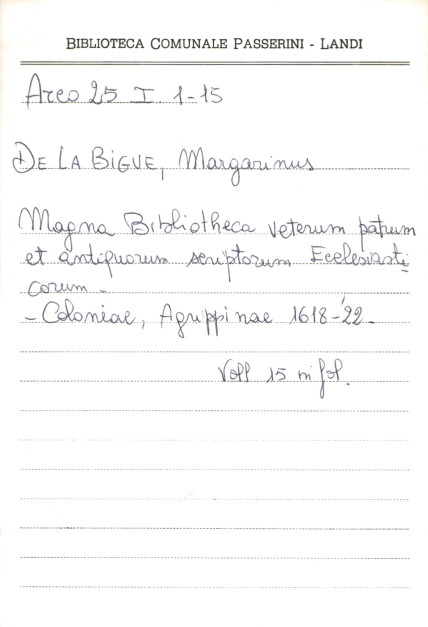 BIBLIOTECA COMUNALE PASSERINI - LANDI
Arco 25 I 1-15
DE LA BIGUE, Margarinus
Magna Bibliotheca veterum patrum
et antiquorum scriptorum Ecclesiasti
corum -
- Coloniae, Agrippinae 1618-'22 -
Voll 15 in fol.